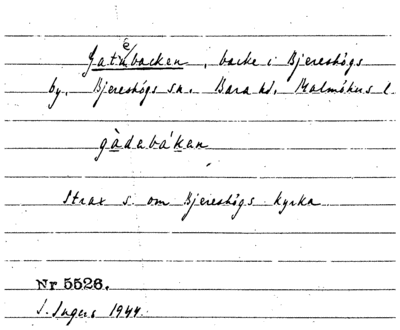 Gatebacken, backe i Bjereshögs
by, Bjereshögs sn. Bara hd. Malmöhus l.
gàdabákan
Strax s. om Bjereshögs kyrka
Nr 5526.
I. Ingers 1944.